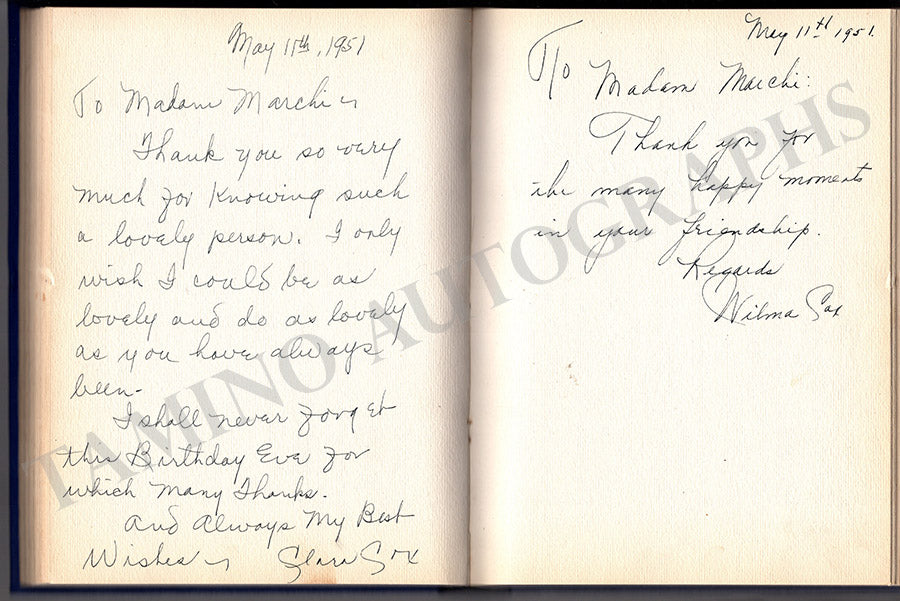 May 11th, 1951
To Madam Marchi
Thank you so very
much for Knowing such
a lovely person. I only
wish I could be as
lovely and do as lovely
as you have always
been-
I shall never forget
this Birthday Eve for
which many Thanks.
And Always My Best
Wishes Clara Cox
May 11th 1951.
To
Madam Marchi:
Thank you for
the many happy moments
in your friendship.
Regards
Wilma Cox
TAMINO AUTOGRAPHS